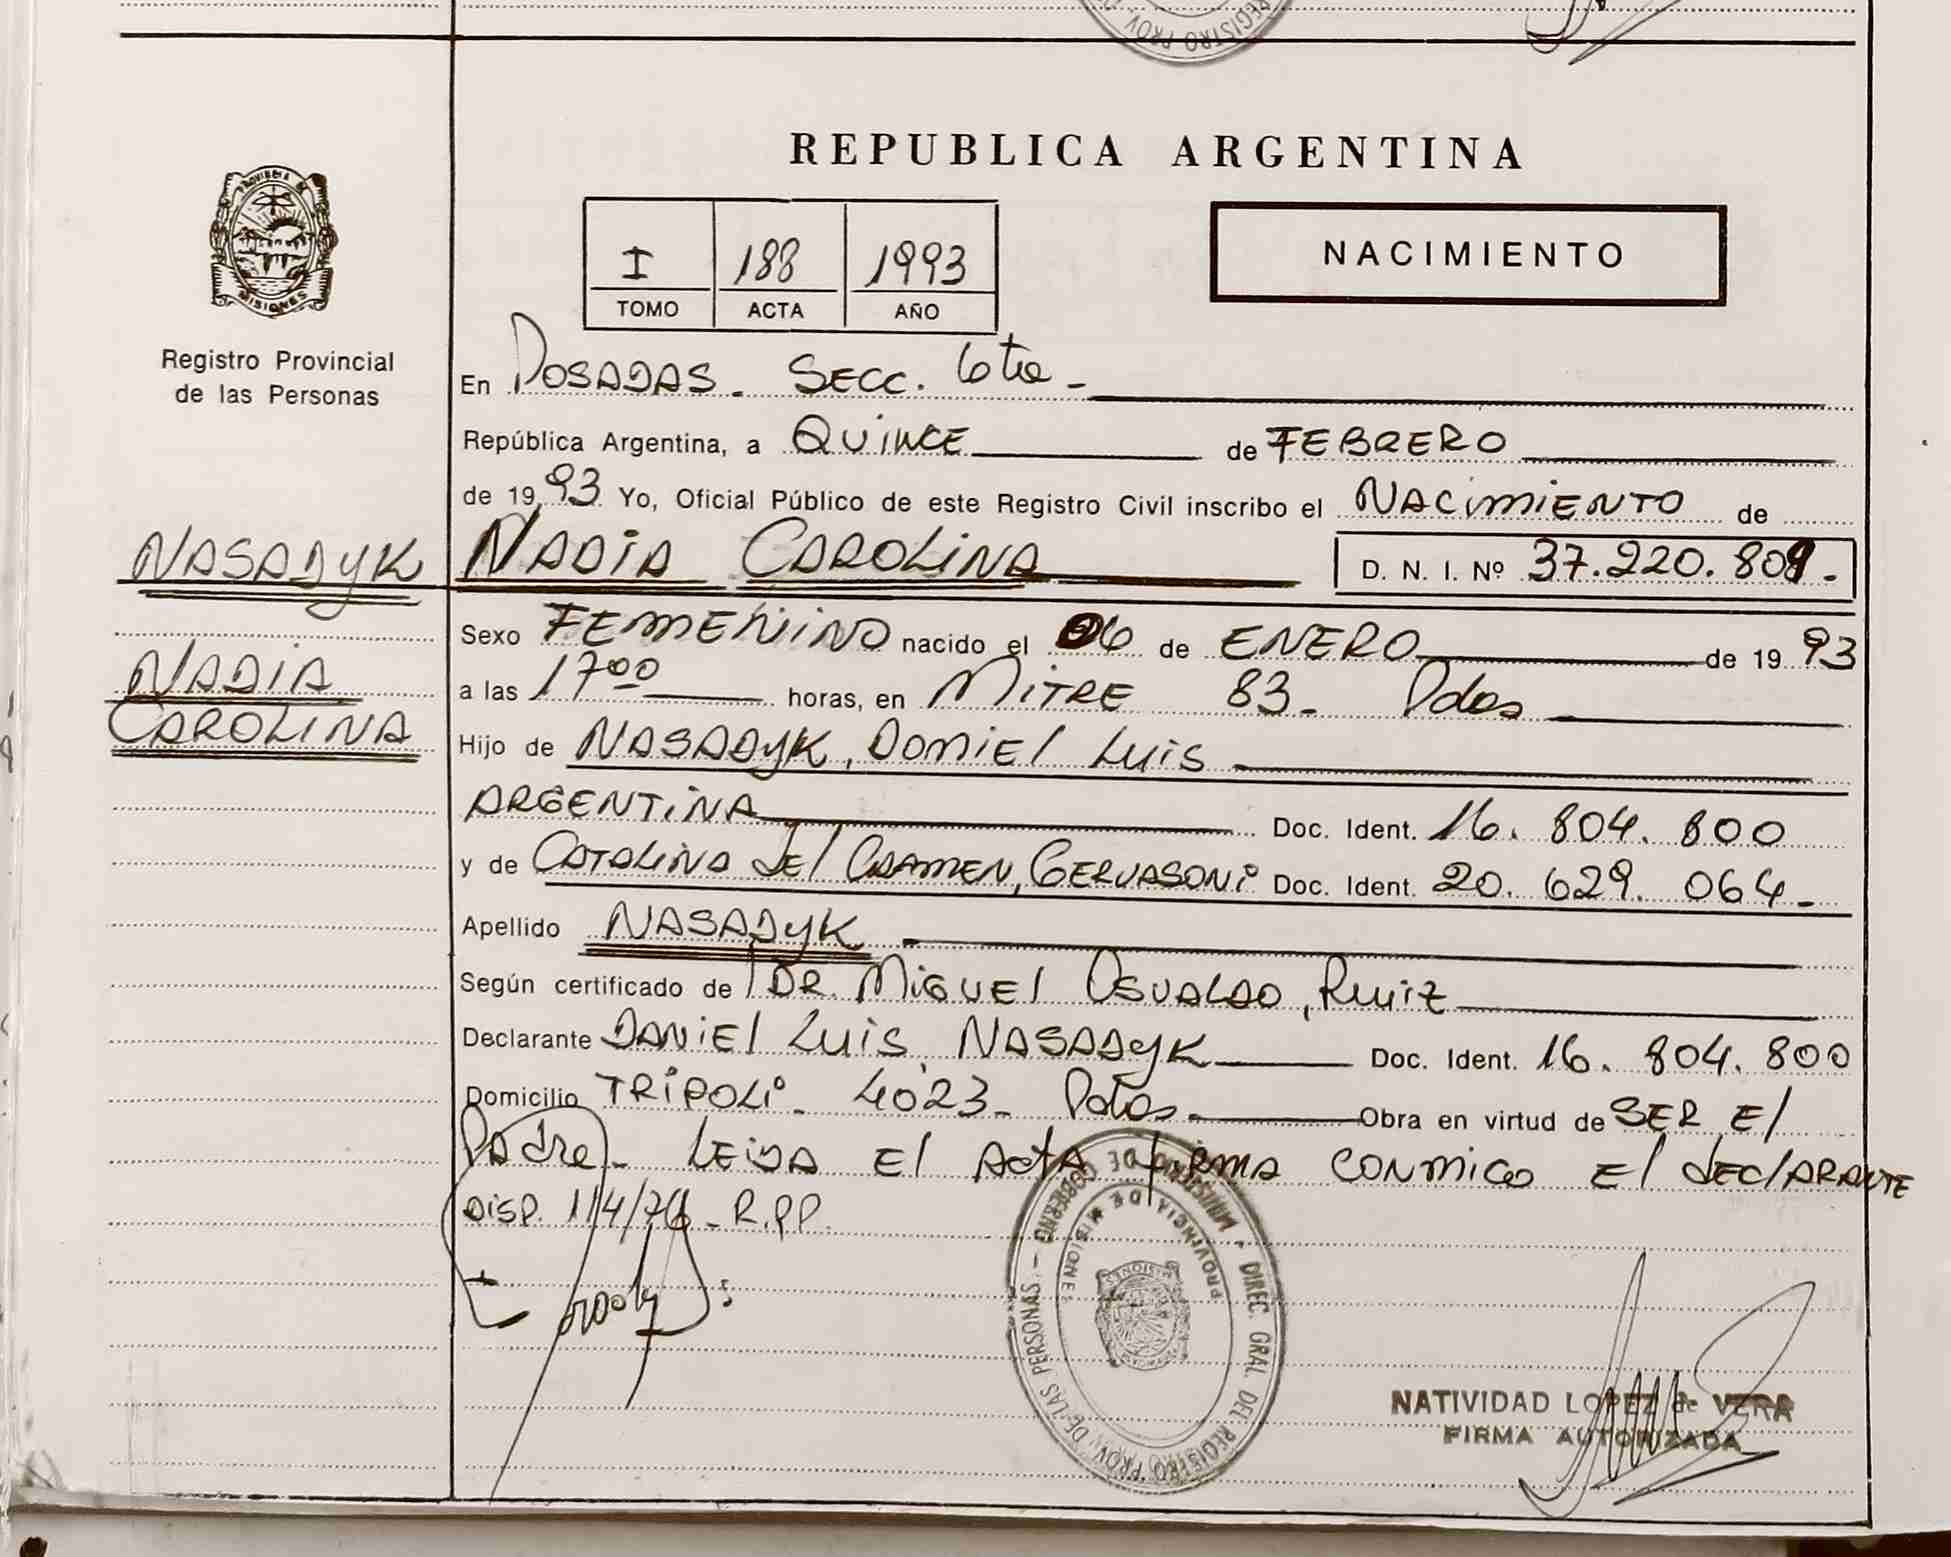 REPUBLICA ARGENTINA
PROVINCIA DE
MISIONES
Registro Provincial
de las Personas
I 188 1993
TOMO ACTA AÑO
NACIMIENTO
En POSADAS. SECC. 6ta -
República Argentina, a QUINCE de FEBRERO
de 1993 Yo, Oficial Público de este Registro Civil inscribo el NACIMIENTO de
NASADYK
NADIA
CAROLINA
NADIA CAROLINA D. N. I. Nº 37.220.809.
Sexo FEMENINO nacido el 06 de ENERO de 1993
a las 17 00 horas, en MITRE 83 - Pdas
Hijo de NASADYK, DANIEL LUIS
ARGENTINA Doc. Ident. 16. 804. 800
y de CATALINA del CARMEN, GERVASONI Doc. Ident. 20. 629. 064 -
Apellido NASADYK
Según certificado de DR. MIGUEL OSUALDO, RUIZ
Declarante DANIEL LUIS NASADYK Doc. Ident. 16. 804. 800
Domicilio TRIPOLI - 4023 - Pdas - Obra en virtud de SER El
Padre - LEIDA El ActA firMA CONMIGO El declARANTE
DISP. 114/76 - R.P.P.
MINISTERIO DE GOBIERNO - DIREC. GRAL. DEL REGISTRO PROV. DE LAS PERSONAS -
PROVINCIA DE MISIONES
NATIVIDAD LOPEZ de VERA
FIRMA AUTORIZADA